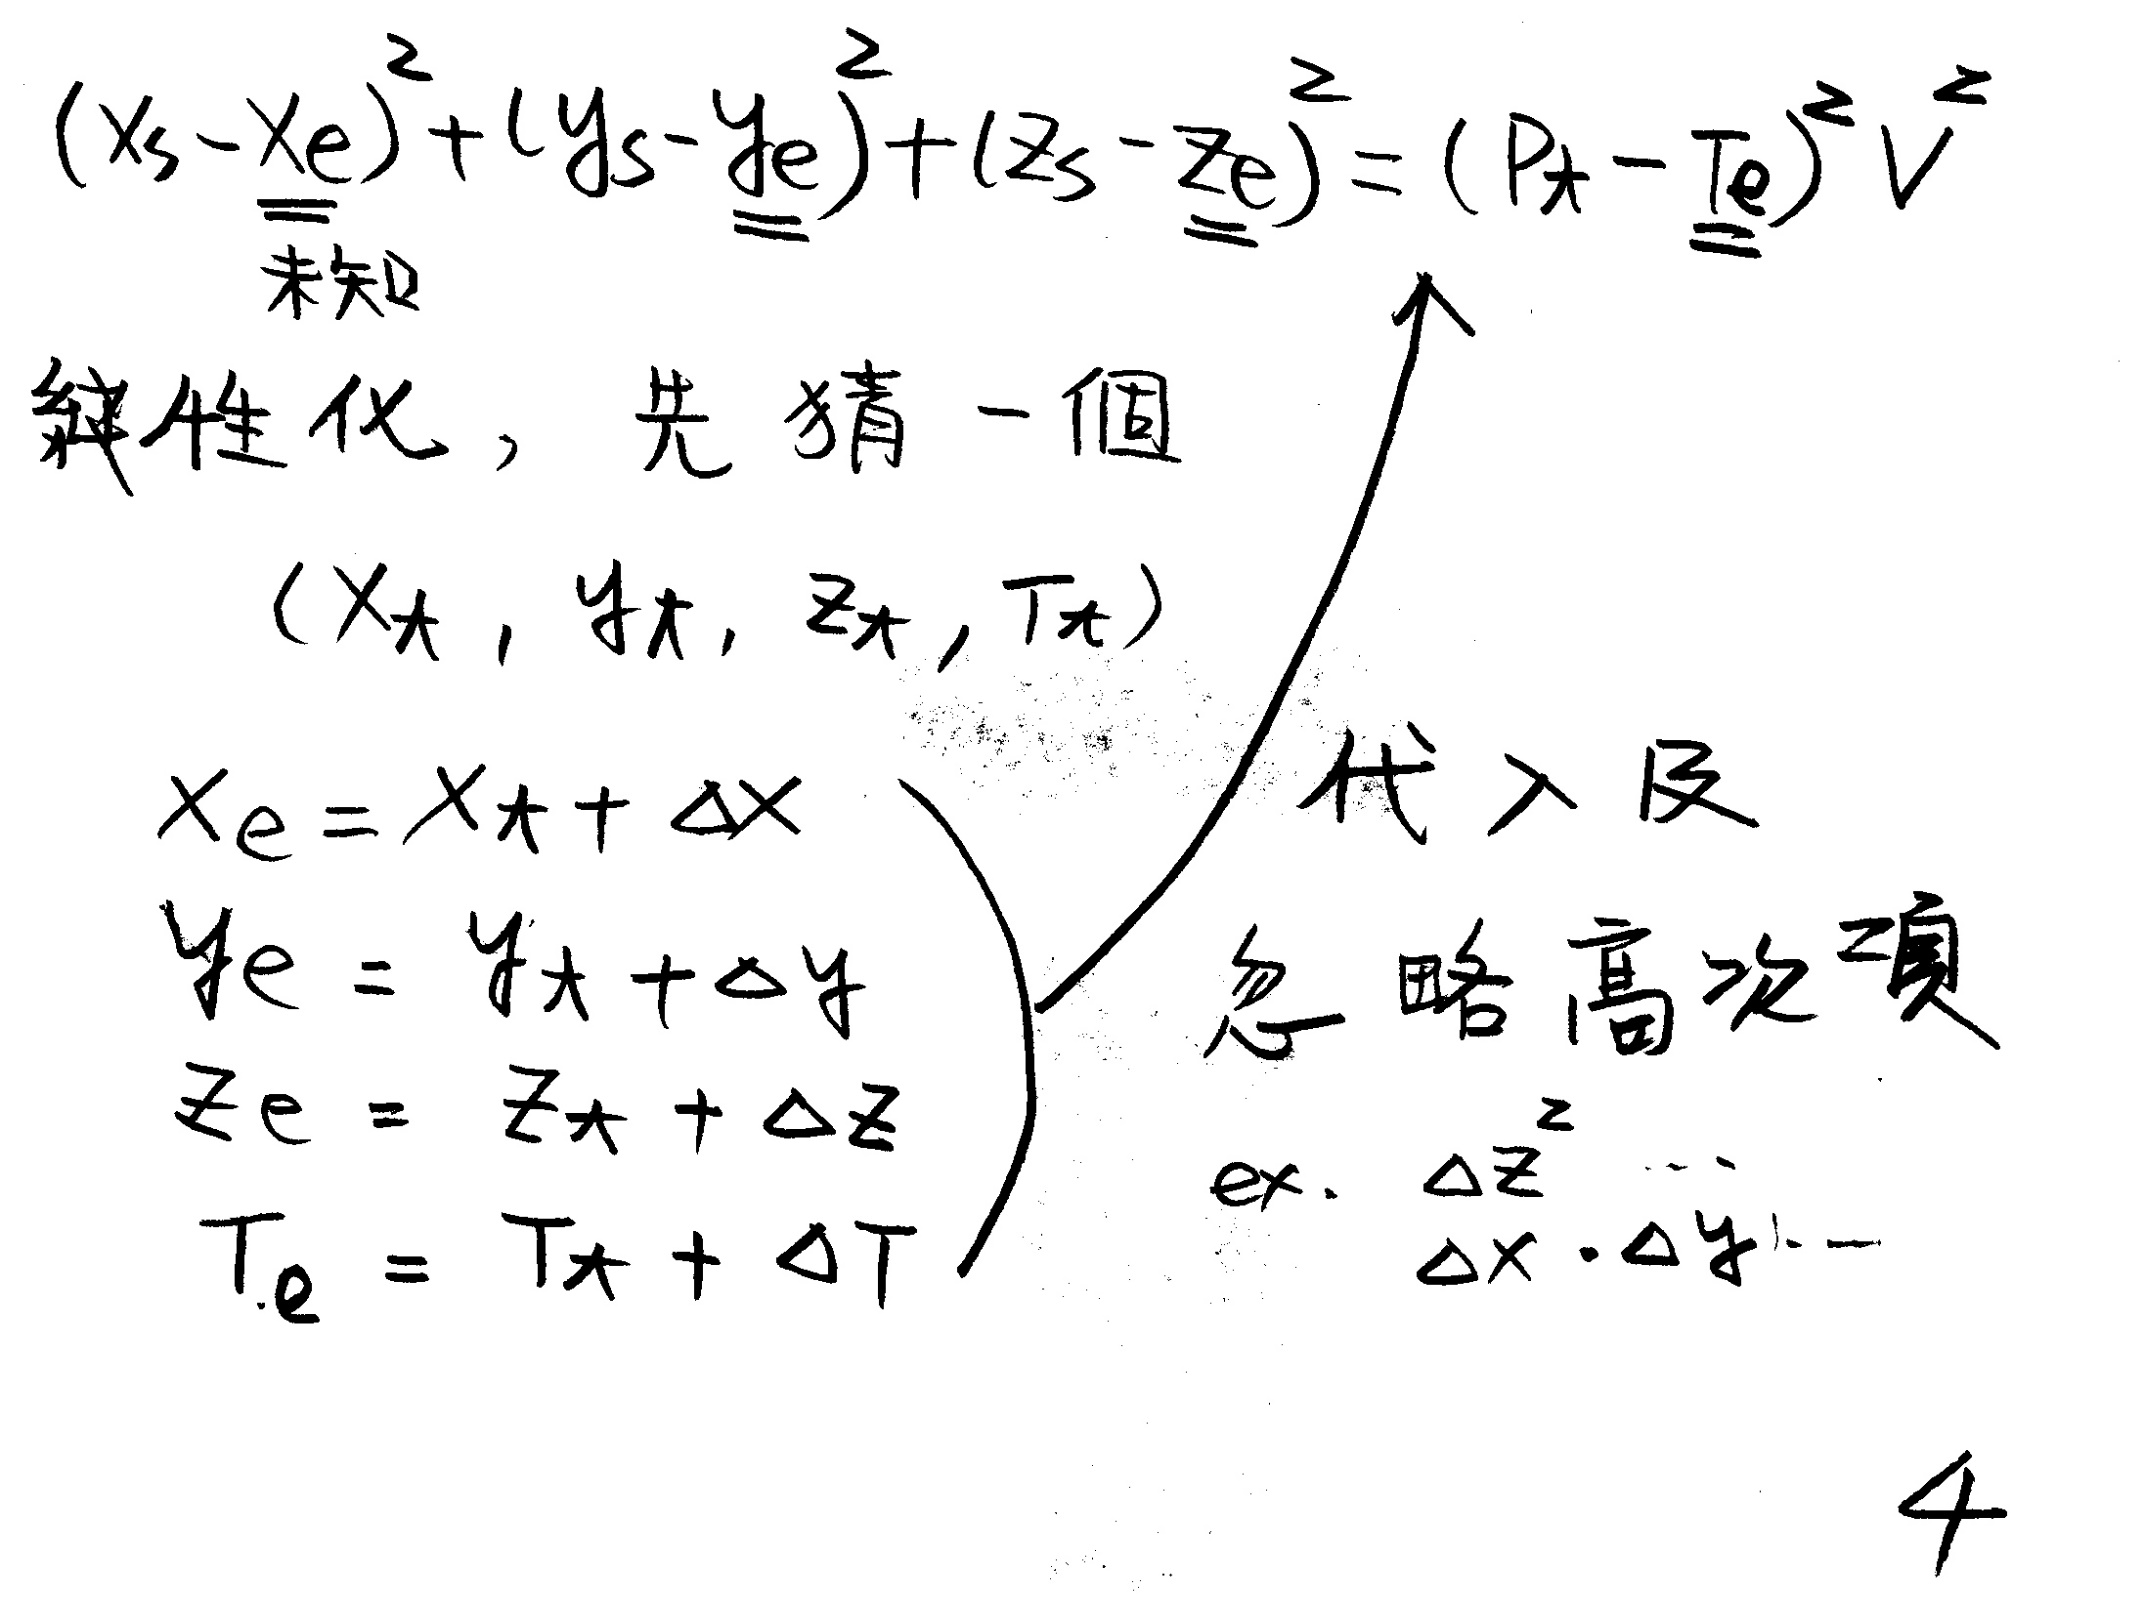 (xs - xe)² + (ys - ye)² + (zs - ze)² = (P* - Te)² V²
未知
線性化, 先猜一個
(x*, y*, z*, T*)
xe = x* + Δx
ye = y* + Δy
ze = z* + Δz
Te = T* + ΔT
代入及
忽略高次項
ex. Δz² ...
Δx · Δy ...
4